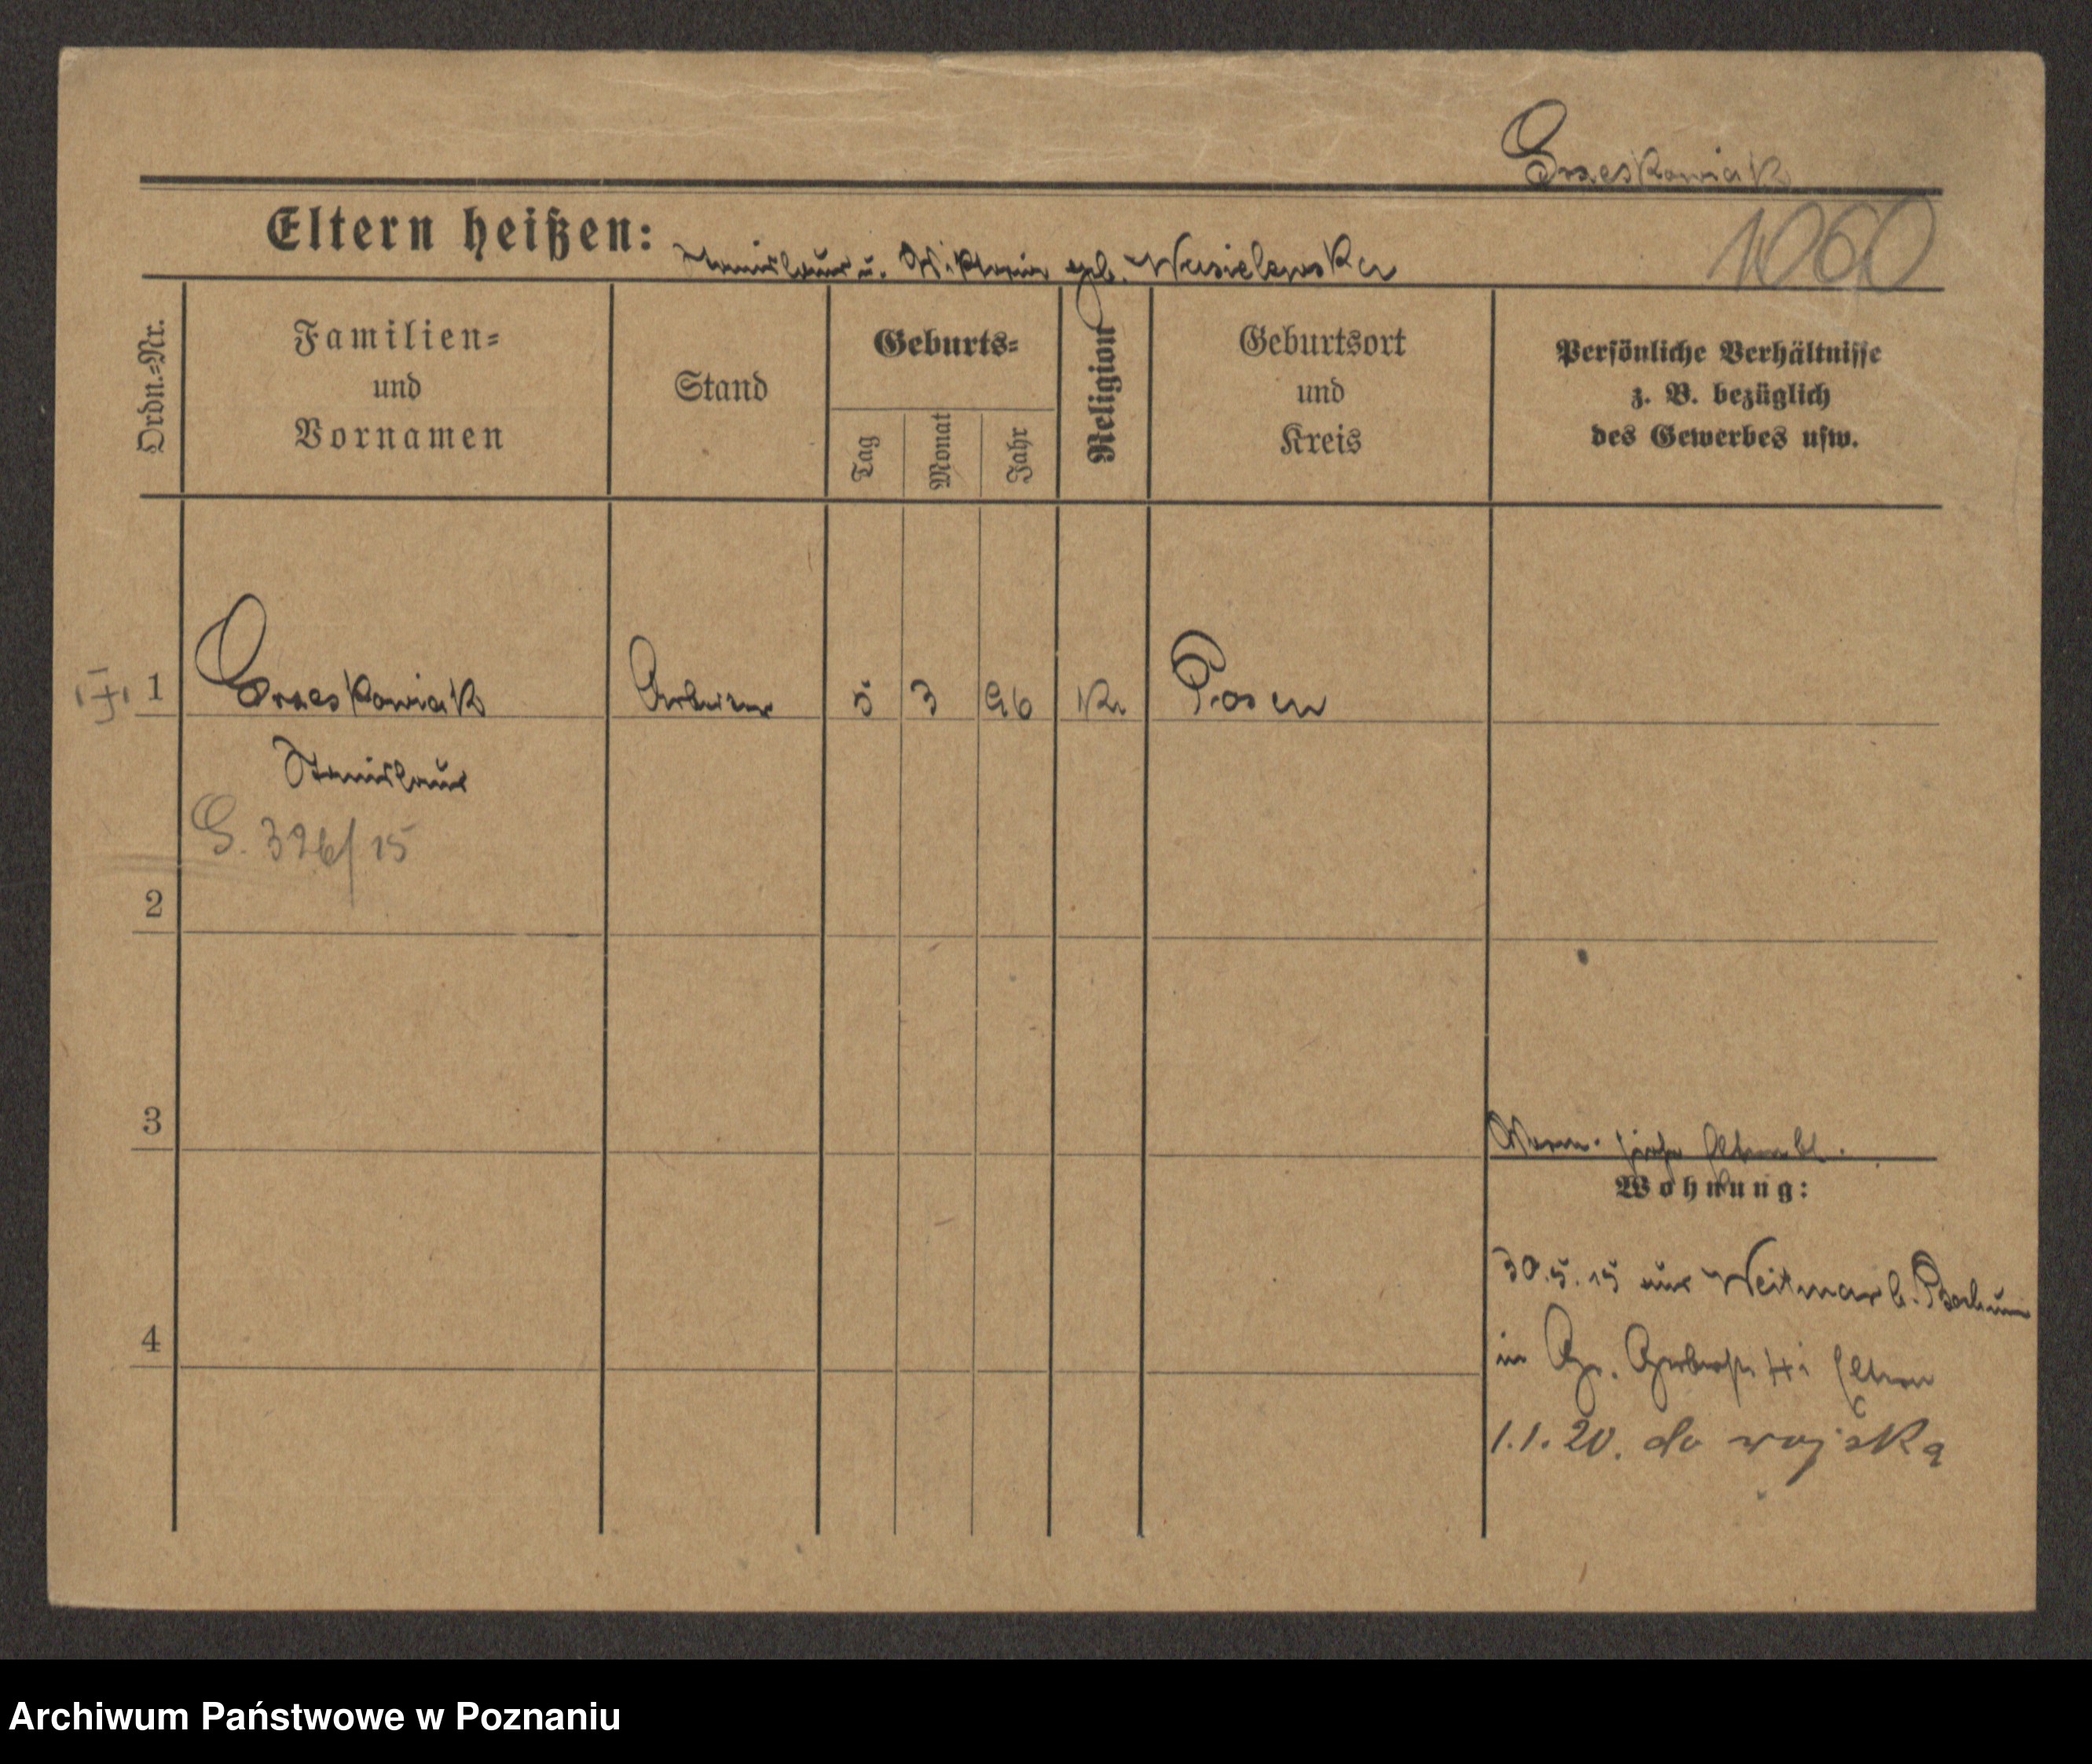 Grzeskowiak
1060
Eltern heißen: Stanislaus u. Wiktoria geb. Wasielewska
Ordn.-Nr.
Familien-
und
Vornamen
Stand
Geburts-
Tag
Monat
Jahr
Religion
Geburtsort
und
Kreis
Persönliche Verhältnisse
z. B. bezüglich
des Gewerbes usw.
1 Grzeskowiak Arbeiter 5 3 96 Posen
Stanislaus
G. 326/15
2
3
siehe Elternbl.
Wohnung:
30.5.15 aus Weitmar b. Bochum
4
in Eltern
1.1.20. do wojska
Archiwum Państwowe w Poznaniu